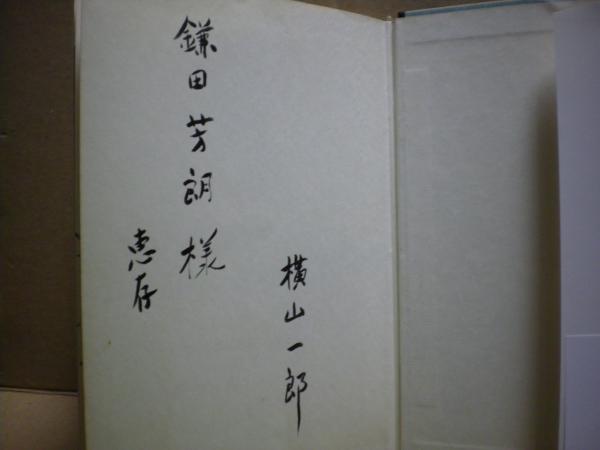 横山一郎
鎌田芳朗様
恵存